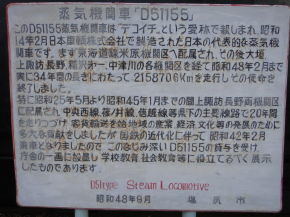 蒸気機関車「D51155」
このD51155蒸気機関車は“デコイチ”という愛称で親しまれ、昭和
14年2月日本車輌株式会社で製造された日本の代表的な蒸気機
関車です。まず東海道線米原機関区へ配属され、その後大垣
上諏訪 長野 稲沢 中津川の各機関区を経て昭和48年2月まで
実に34年間の長きにわたって 2158706Kmを走行しその使命を
終了しました。
特に昭和25年5月より昭和45年1月までの間上諏訪長野両機関区
に配属され、中央西線、篠ノ井線、信越線等県下の主要線路で20年間
を走りつづけ 客貨輸送を始め地域の産業 経済 文化等の発展のために
多大な貢献をしましたが 国鉄の近代化に伴って 昭和42年2月
廃車となりましたので このなじみ深いD51155の特与を受け
庁舎の一画に設置し 学校教育 社会教育等に役立てるべく展示
したものであります。
D51type Steam Locomotive
昭和48年9月 塩尻市